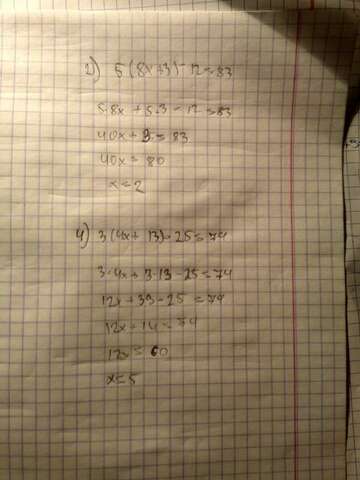 2) 5(8x+3)-12=83
5·8x+5·3-12=83
40x+3=83
40x=80
x=2
4) 3(4x+13)-25=74
3·4x+3·13-25=74
12x+39-25=74
12x+14=74
12x=60
x=5